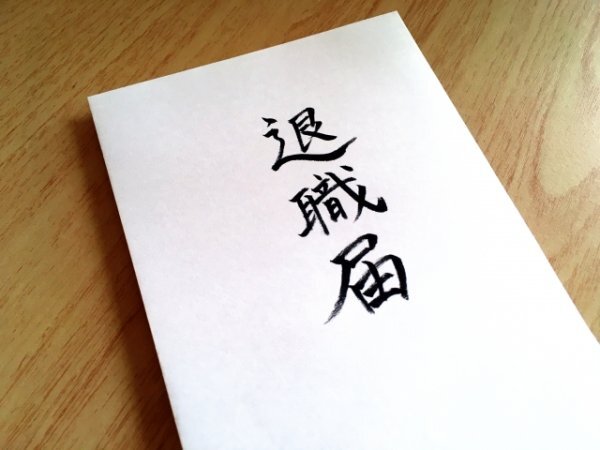 退職届